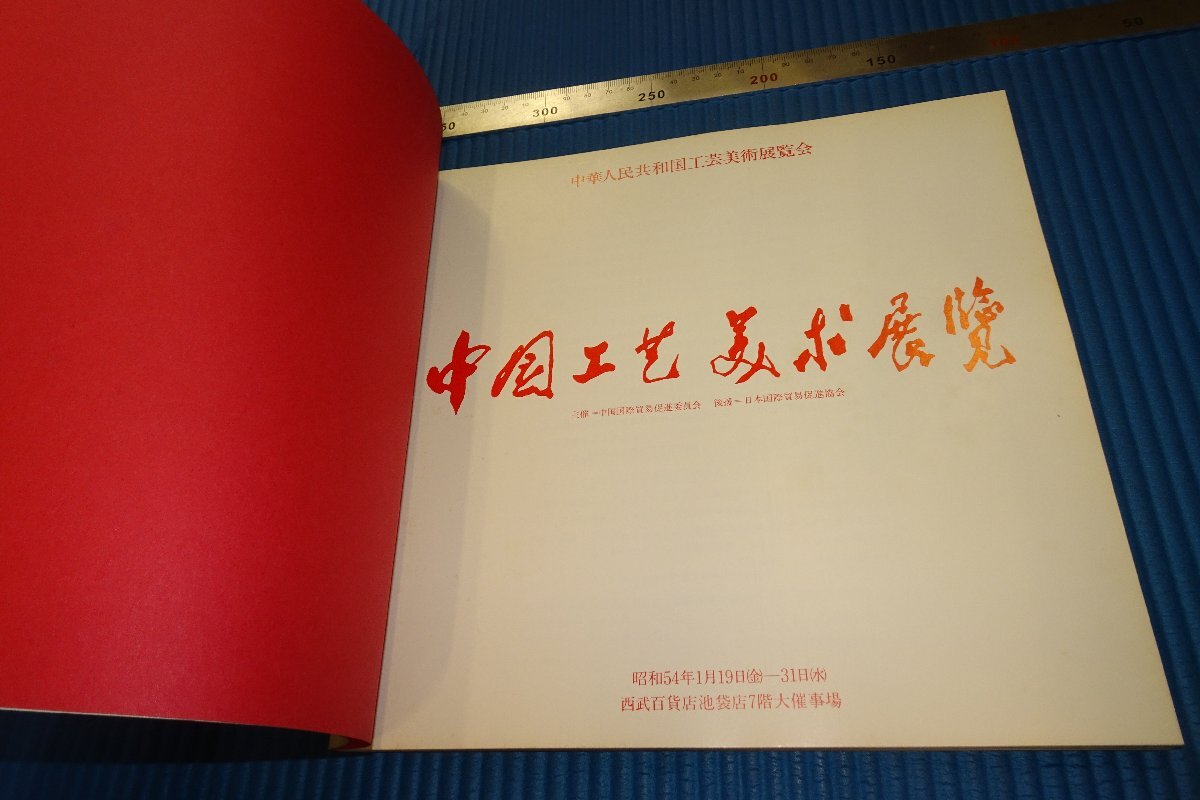 50
150
200
250
300
中華人民共和国工芸美術展覧会
中国工艺美术展覽
主催=中国国際貿易促進委員会 後援=日本国際貿易促進協会
昭和54年1月19日㈮—31日㈬
西武百貨店池袋店7階大催事場